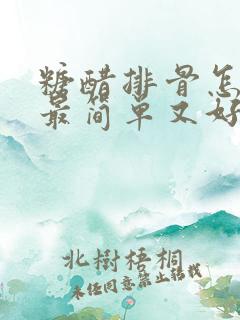 糖醋排骨怎
最简单又好
北树梧桐
未经同意禁止转载